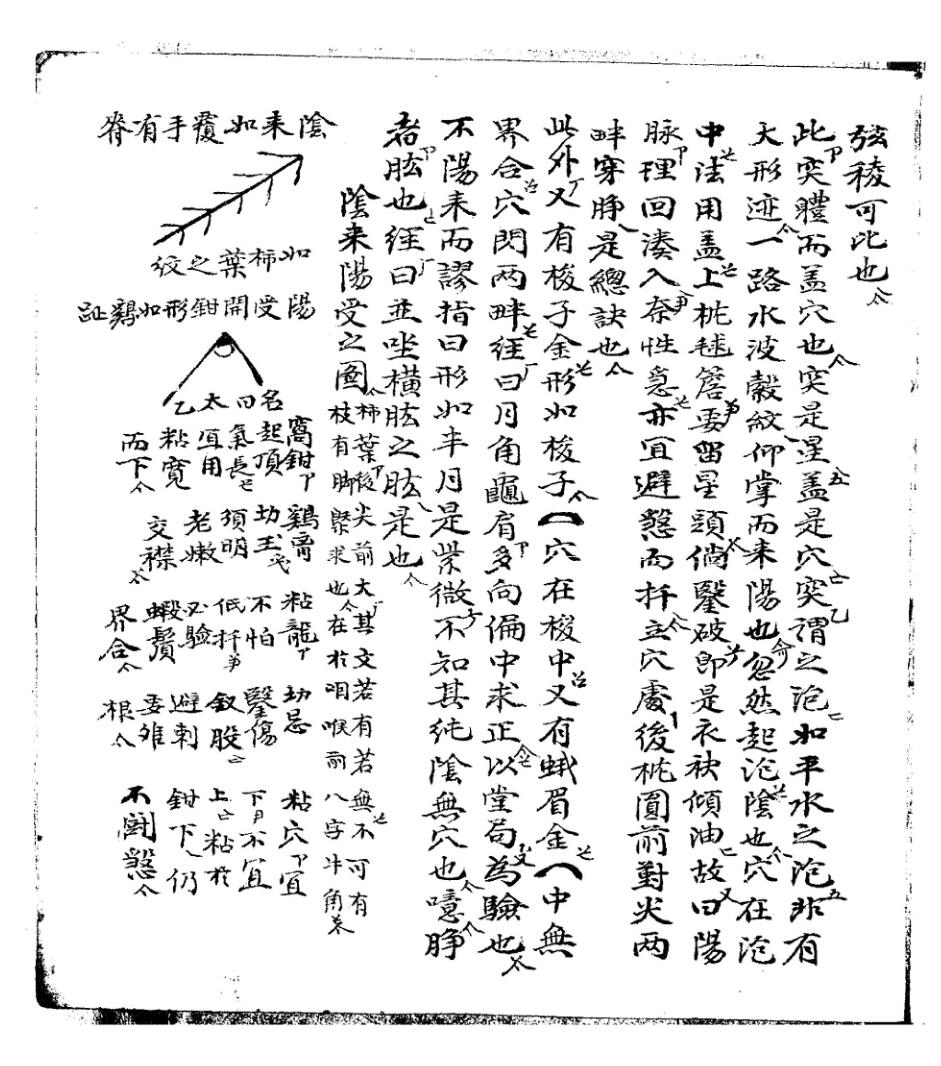 弦稜可比也
此突體而盖穴也突是星盖是穴突謂之泡如平水之泡非有
大形迹一路水波縠紋仰掌而来陽也忽然起泡陰也穴在泡
中法用盖上枕毬簷要留星頭倘鑿破即是衣袂傾油故曰陽
脉理回湊入奈性急亦冝避煞而扦立穴處後枕圓前對尖两
畔穿睁是總訣也
此外又有梭子金形如梭子穴在梭中又有蛾眉金中無
界合穴閃两畔経曰月角龜肩多向偏中求正以堂局為驗也
不陽来而謬指曰形如半月是紫微不知其純陰無穴也噫睁
者肱也経曰並坐横肱之肱是也
陰来陽受之圖
柿葉後尖前大其文若有若無不可有
枝有脚緊求也在於咽喉前八字牛角来
陰来如覆手有脊
如柿葉之紋
陽受開鉗形如鷄趾
名曰太乙
窩鉗起頂氣長冝用粘寛而下
鷄窝切玉須明老嫩交襟
粘龍不怕低扦必驗蝦鬚界合
切忌鑿傷釵股避刺要雖根
粘穴冝下不冝上粘於鉗下仍不鬪煞